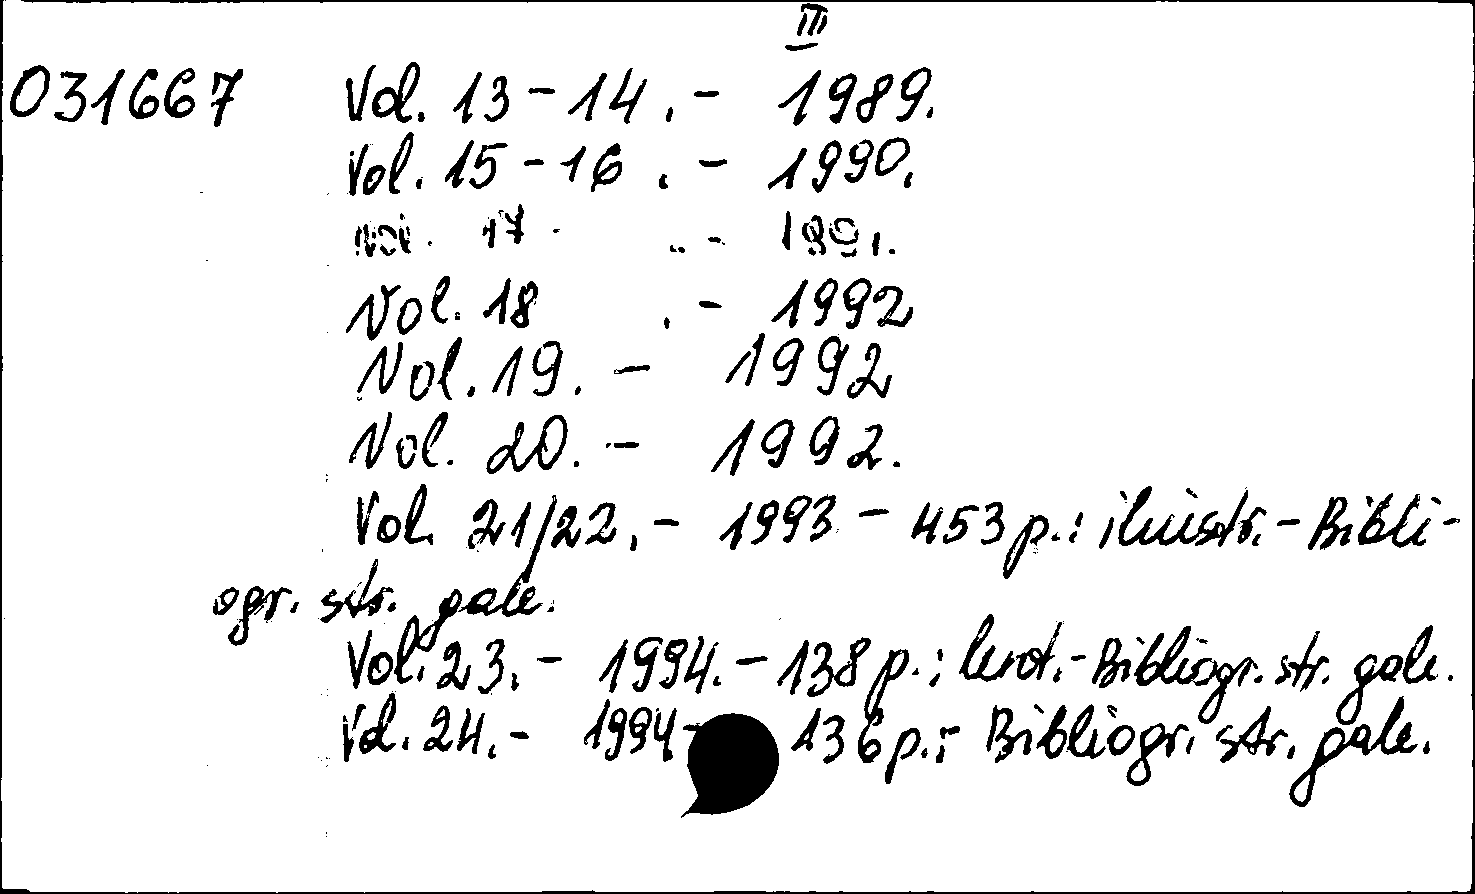 III
031667 Vol. 13-14.- 1989.
Vol. 15-16.- 1990.
Vol. 17.- 1991.
Vol. 18.- 1992
Vol. 19.- 1992
Vol. 20.- 1992.
Vol. 21/22.- 1993 - 453 p.: iliustr.- Bibli-
ogr. str. gale.
Vol. 23.- 1994.- 138 p.; lent.- Bibliogr. str. gale.
Vol. 24.- 1994- 136 p.;- Bibliogr. str. gale.